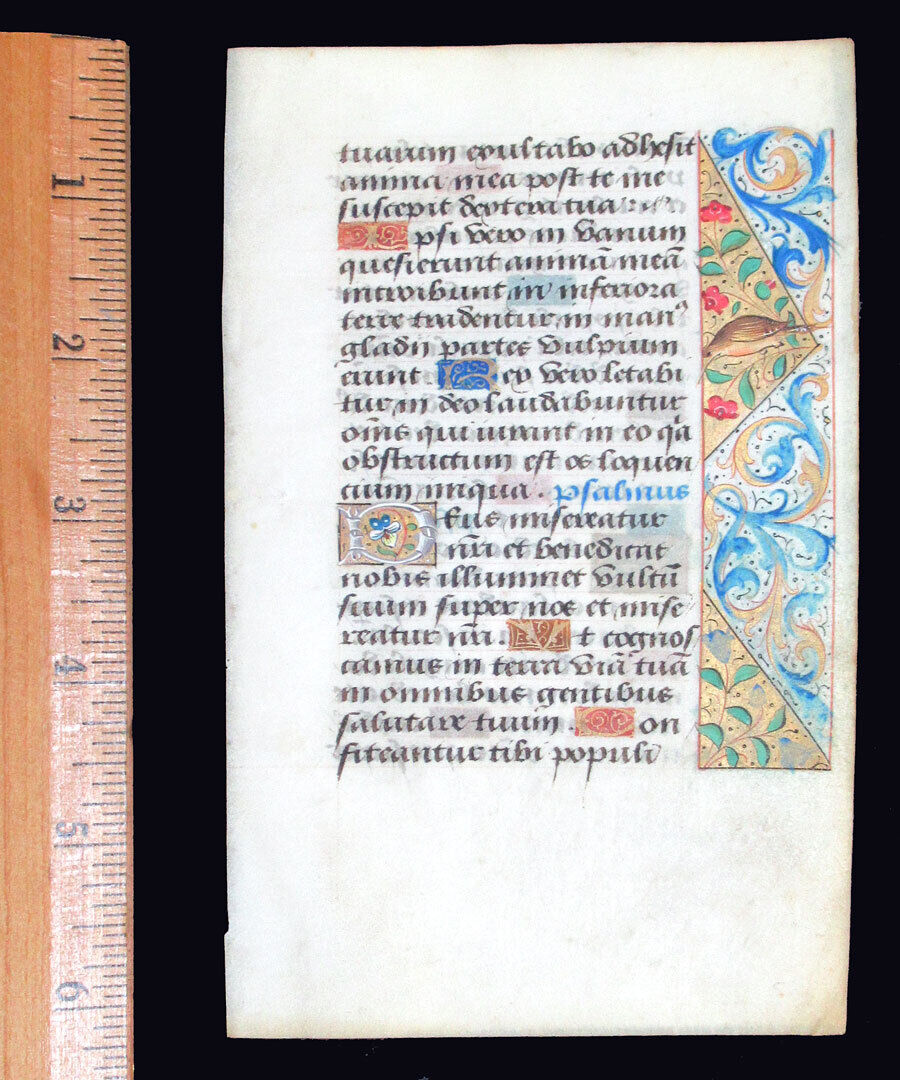 1
2
3
4
5
6
tuarum exultabo adhesit
anima mea post te me
suscepit dextera tua
Ipsi vero in vanum
quesierunt animā meā
introibunt in inferiora
terre tradentur in manꝰ
gladii partes vulpium
erunt. Rex vero letabi
tur in deo laudabuntur
om̄s qui iurant in eo q̄a
obstructum est os loquen
cium iniqua. psalmus
Deus misereatur
nr̄i et benedicat
nobis illuminet vultū
suum super nos et mise
reatur nr̄i. Et cognos
camus in terra viā tuā
in omnibus gentibus
salutare tuum. Con
fiteantur tibi populi